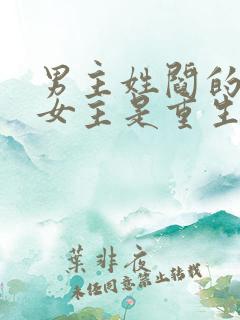 男主姓阎的
女主是重生
葉非夜
未经同意禁止转载